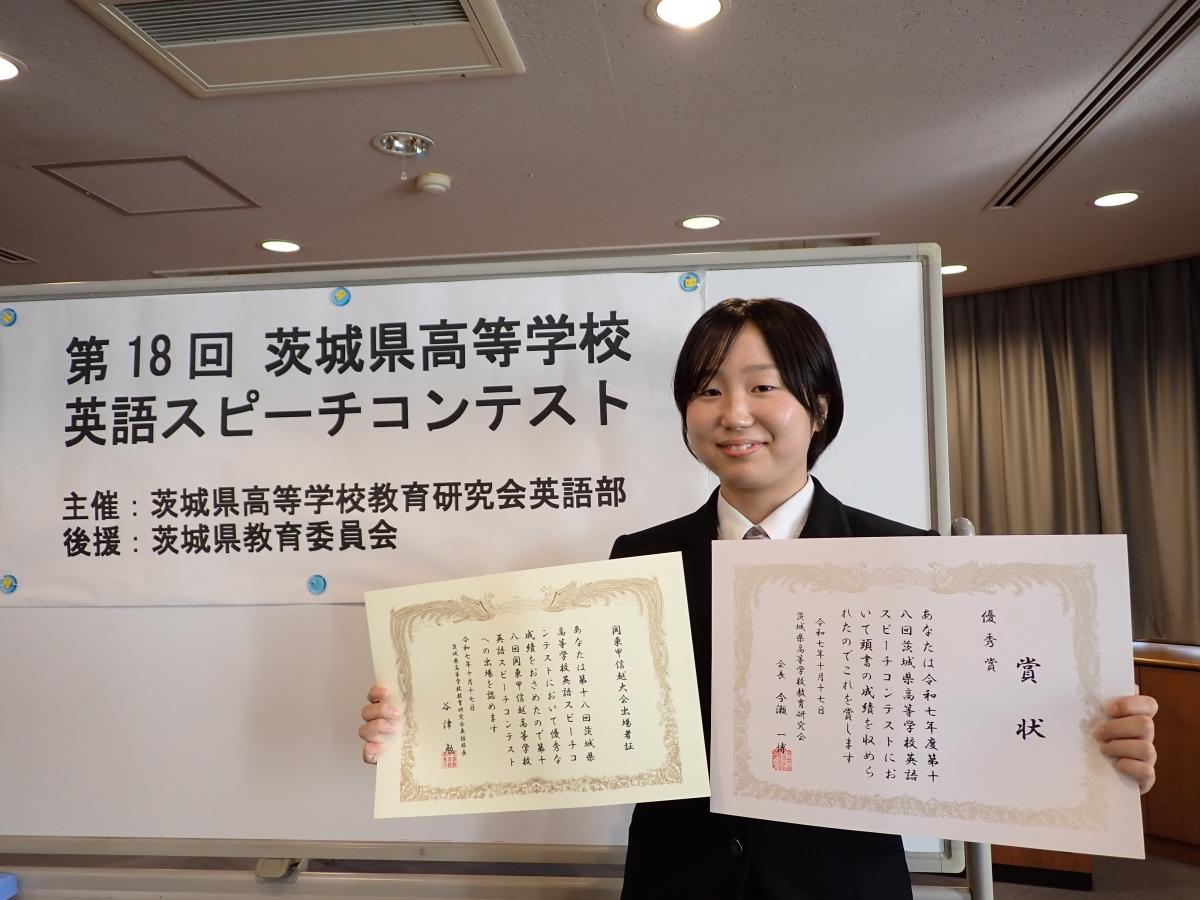 第18回 茨城県高等学校
英語スピーチコンテスト
主催：茨城県高等学校教育研究会英語部
後援：茨城県教育委員会
関東甲信越大会出場者証
あなたは第十八回茨城県
高等学校英語スピーチコ
ンテストにおいて優秀な
成績をおさめたので第十
八回関東甲信越高等学校
英語スピーチコンテスト
への出場を認めます
令和七年十月十七日
茨城県高等学校教育研究会英語部長
谷津 勉
賞状
優秀賞
あなたは令和七年度第十
八回茨城県高等学校英語
スピーチコンテストにお
いて頭書の成績を収めら
れたのでこれを賞します
令和七年十月十七日
茨城県高等学校教育研究会
会長 今瀬 一博